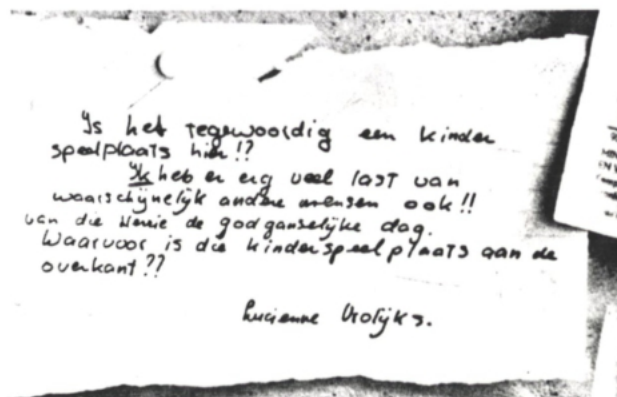 Is het tegewoordig een kinder
speelplaats hier!?
Ik heb er erg veel last van
waarschijnelijk andere mensen ook!!
van die herrie de godganselijke dag.
Waarvoor is die kinderspeelplaats aan de
overkant??
Lucienne Vrolijks.